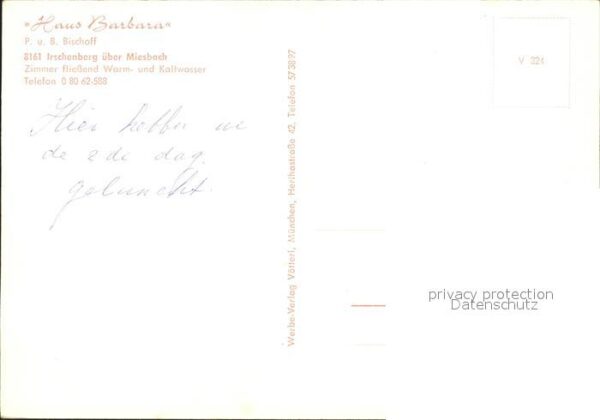 "Haus Barbara"
P. u. B. Bischoff
8161 Irschenberg über Miesbach
Zimmer fließend Warm- und Kaltwasser
Telefon 0 80 62-588
Hier hebben we
de 2de dag
geluncht.
Werbe-Verlag Vötterl, München, Herthastraße 42, Telefon 57 38 97
V 324
privacy protection
Datenschutz